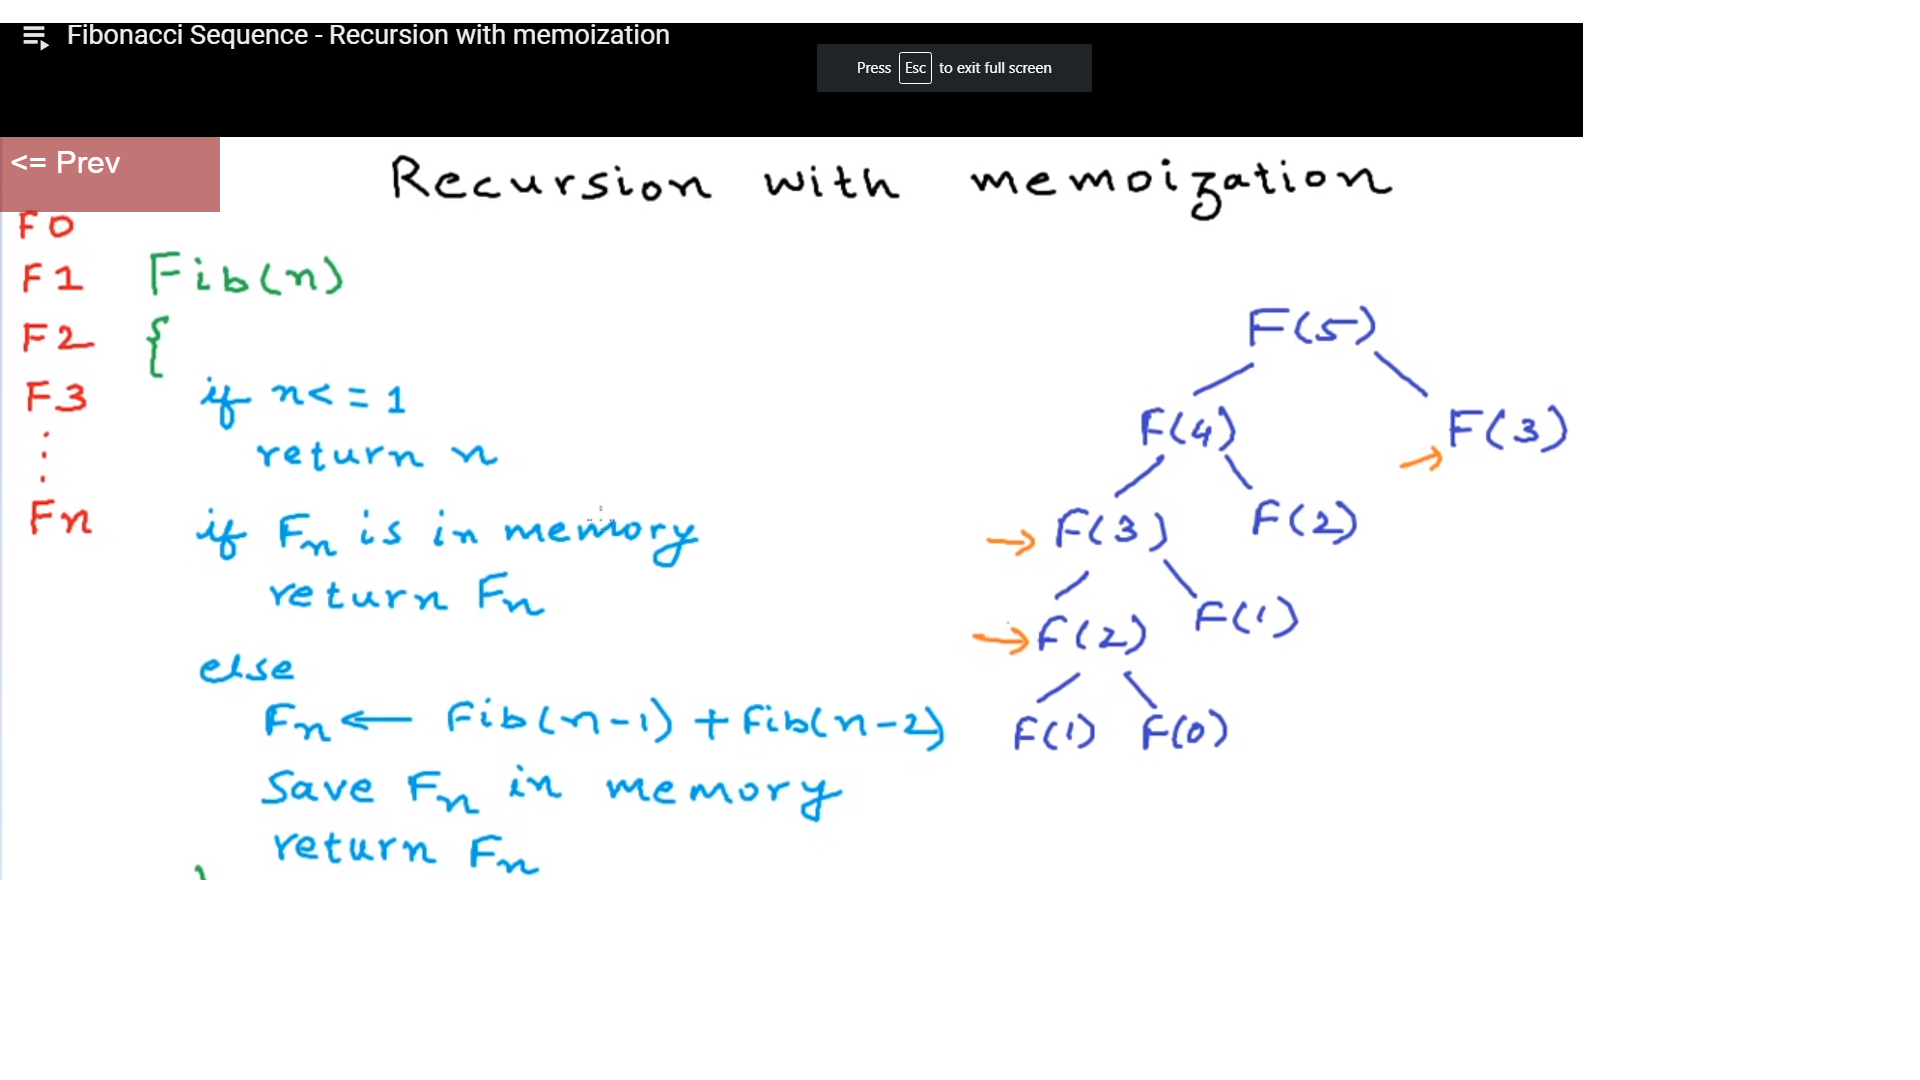 Fibonacci Sequence - Recursion with memoization
Press Esc to exit full screen
<= Prev
Recursion with memoization
F0
F1
F2
F3
Fn
Fib(n)
{
if n<=1
return n
if Fn is in memory
return Fn
else
Fn ← Fib(n-1) + Fib(n-2)
Save Fn in memory
return Fn
F(5)
F(4) F(3)
→ F(3) F(2)
→ F(2) F(1)
F(1) F(0)